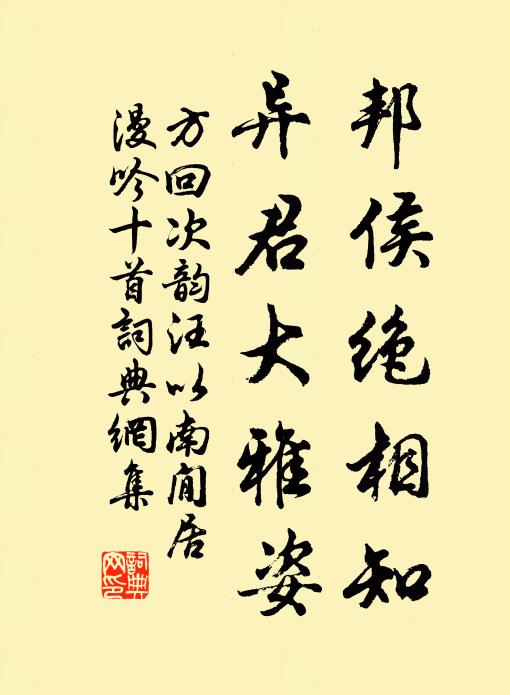 邦侯绝相知
异君大雅姿
方回次韵汪以南闲居
漫吟十首詞典網集
詞典
网印